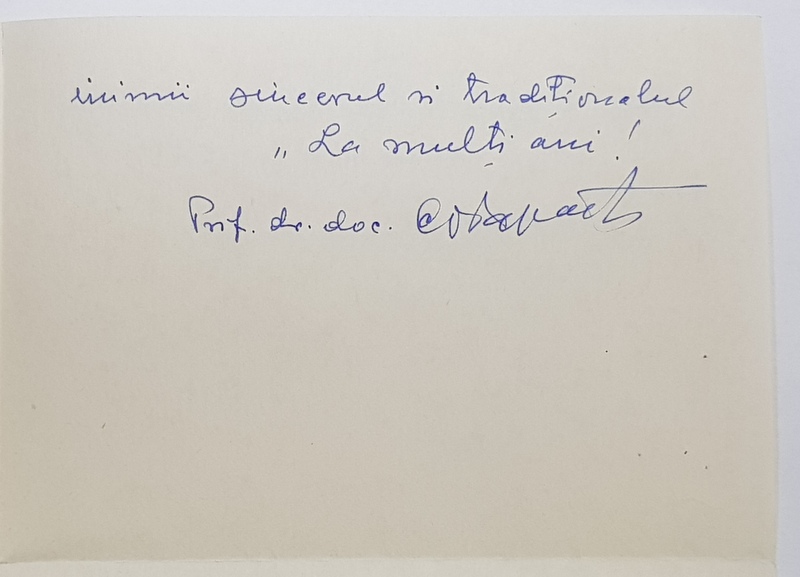 inimii sincerul si tradiționalul
„ La mulți ani !
Prof. dr. doc.